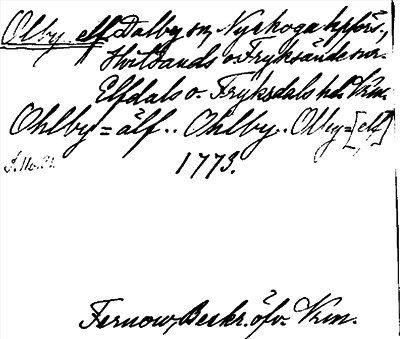 Olby elf Dalby sn, Nyskoga kpförs.,
Hvitsands o. Fryksände snr.
Elfdals o. Fryksdals hd. Vrm.
Ohlby = älf.. Ohlby.. Olby=[elf]
1773.
Fernow, Beskr. öfv. Vrm.